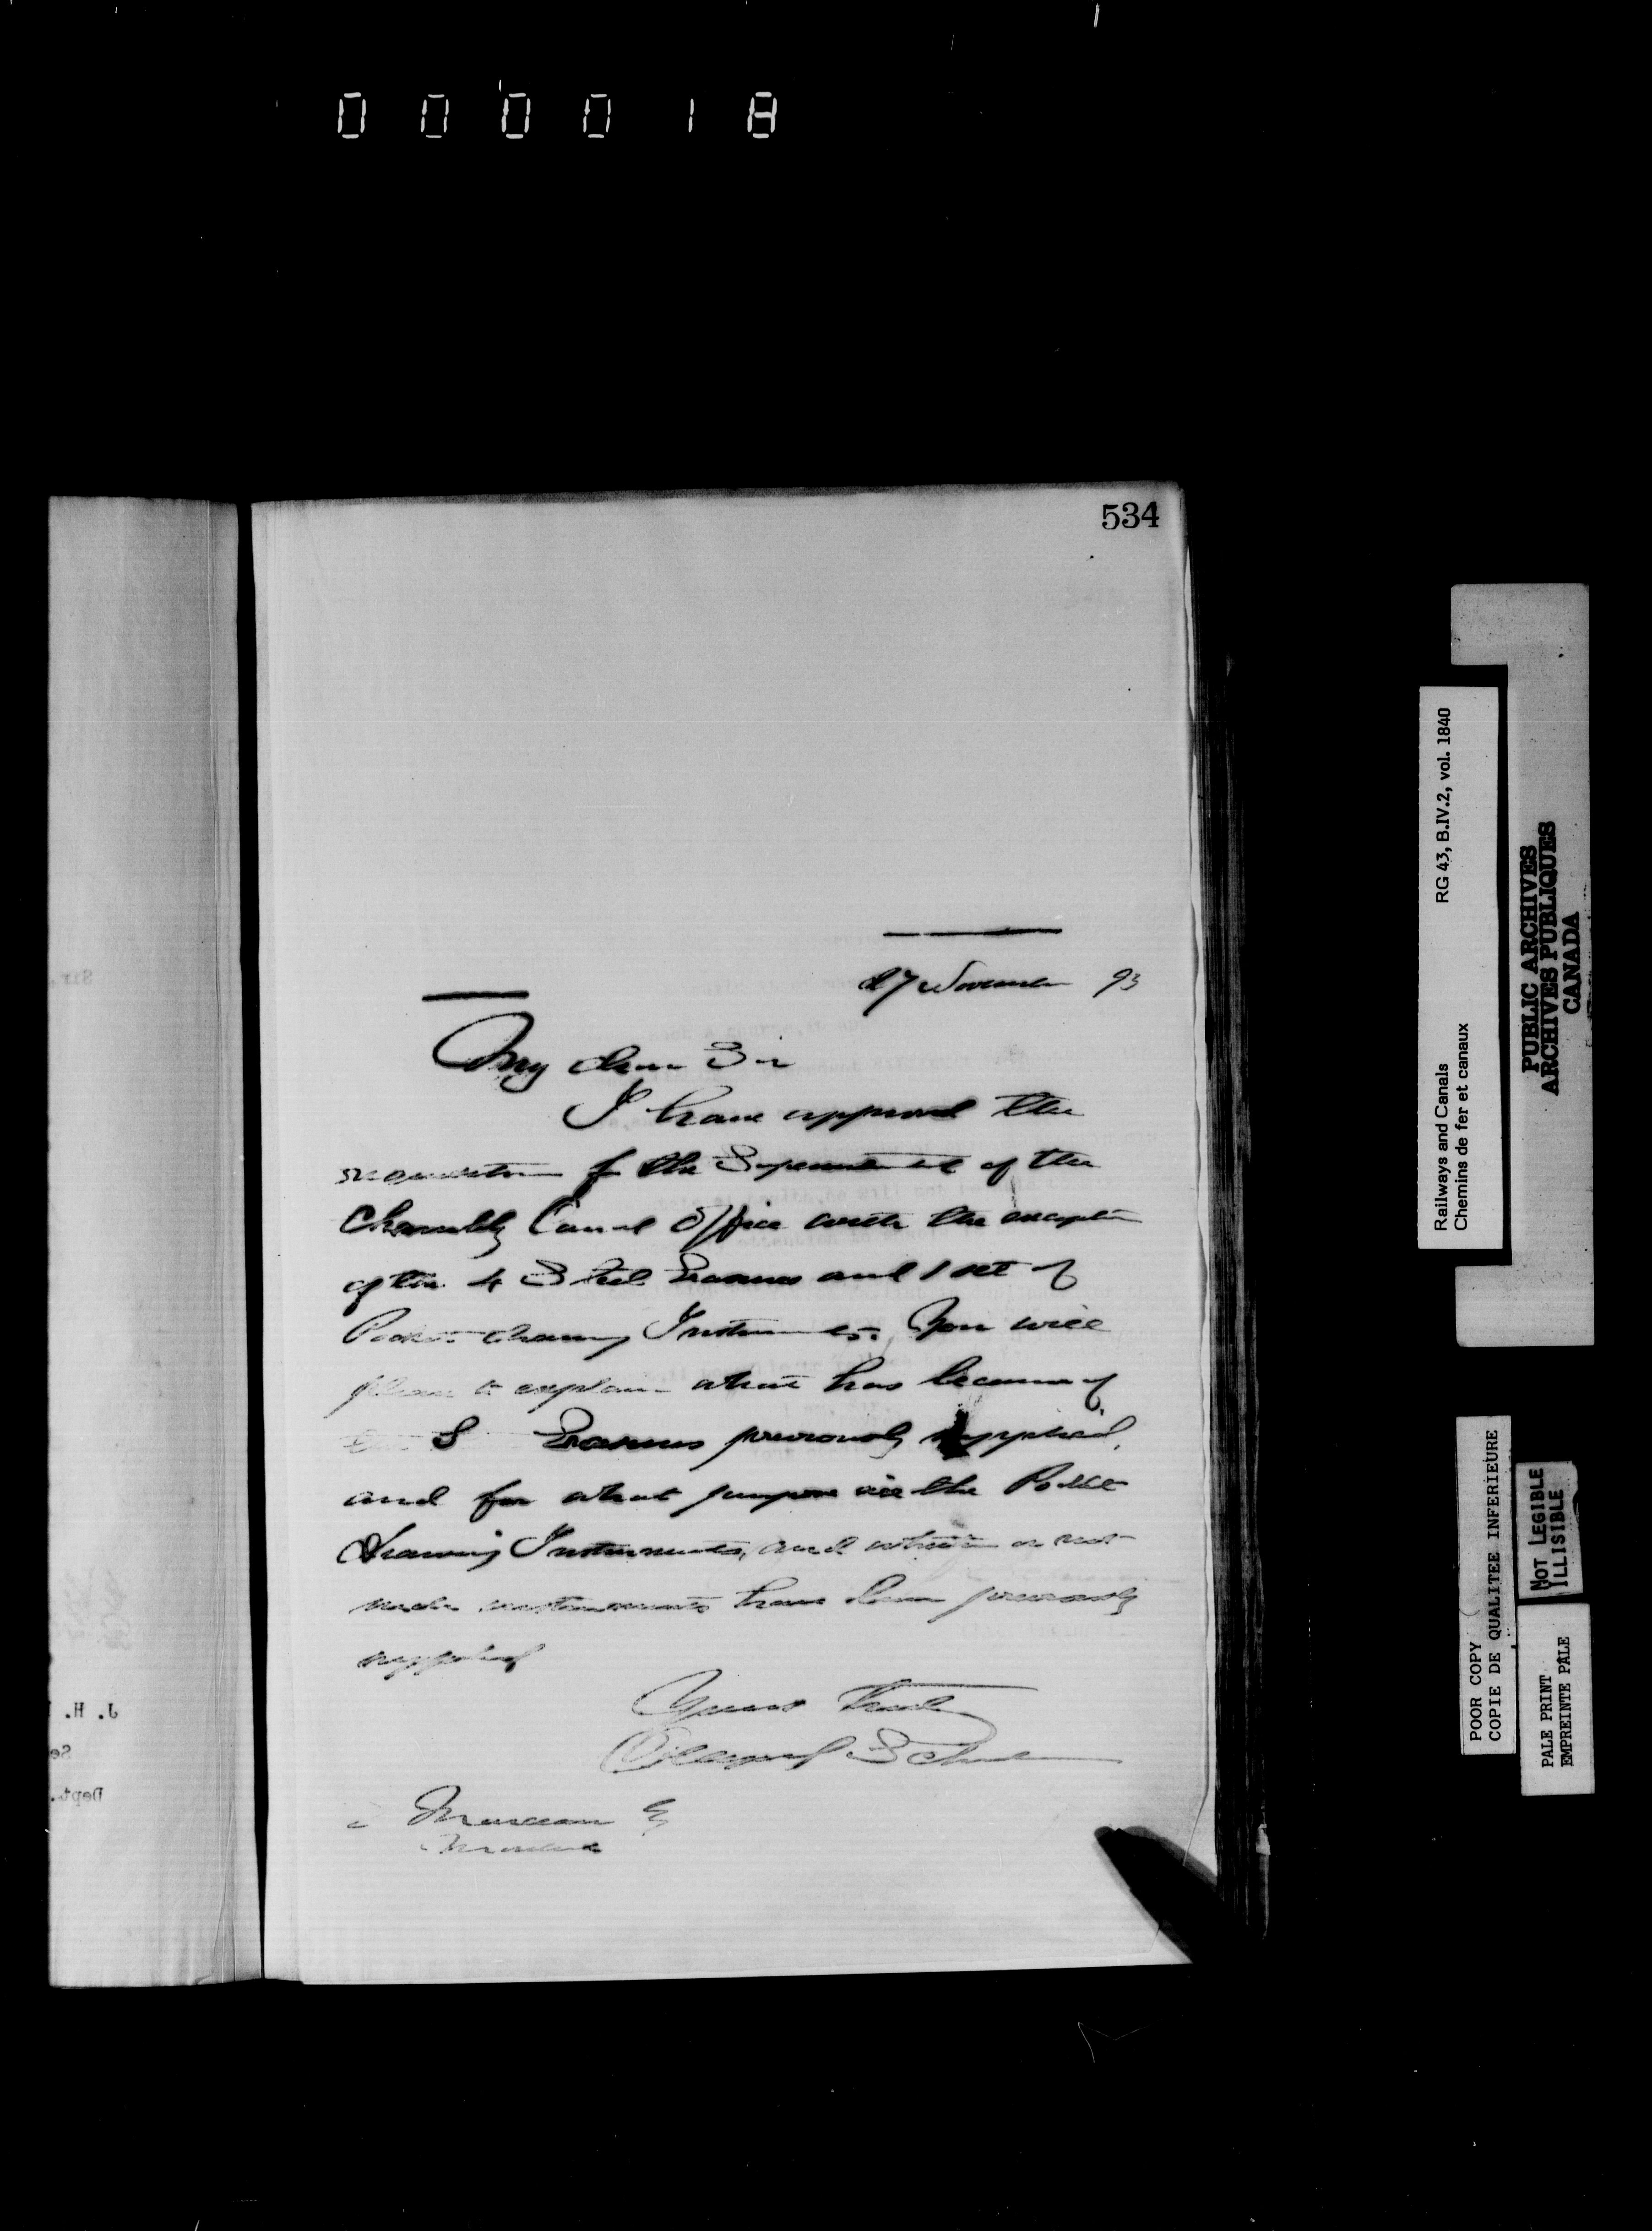 000018
534
27 November 93
My dear Sir
I have approved the
requisition for the Superintendent of the
Chambly Canal Office with the exception
of the 4 Steel Erasers and 1 set of
Pocket drawing Instruments. You will
please to explain what has become of
the Erasers previously supplied,
and for what purpose are the Pocket
drawing Instruments, and whether or not
such instruments have been previously
supplied
Yours truly
Collingwood Schreiber
Railways and Canals RG 43, B.IV.2, vol. 1840
Chemins de fer et canaux
PUBLIC ARCHIVES
ARCHIVES PUBLIQUES
CANADA
POOR COPY
COPIE DE QUALITEE INFERIEURE
NOT LEGIBLE
ILLISIBLE
PALE PRINT
EMPREINTE PÂLE